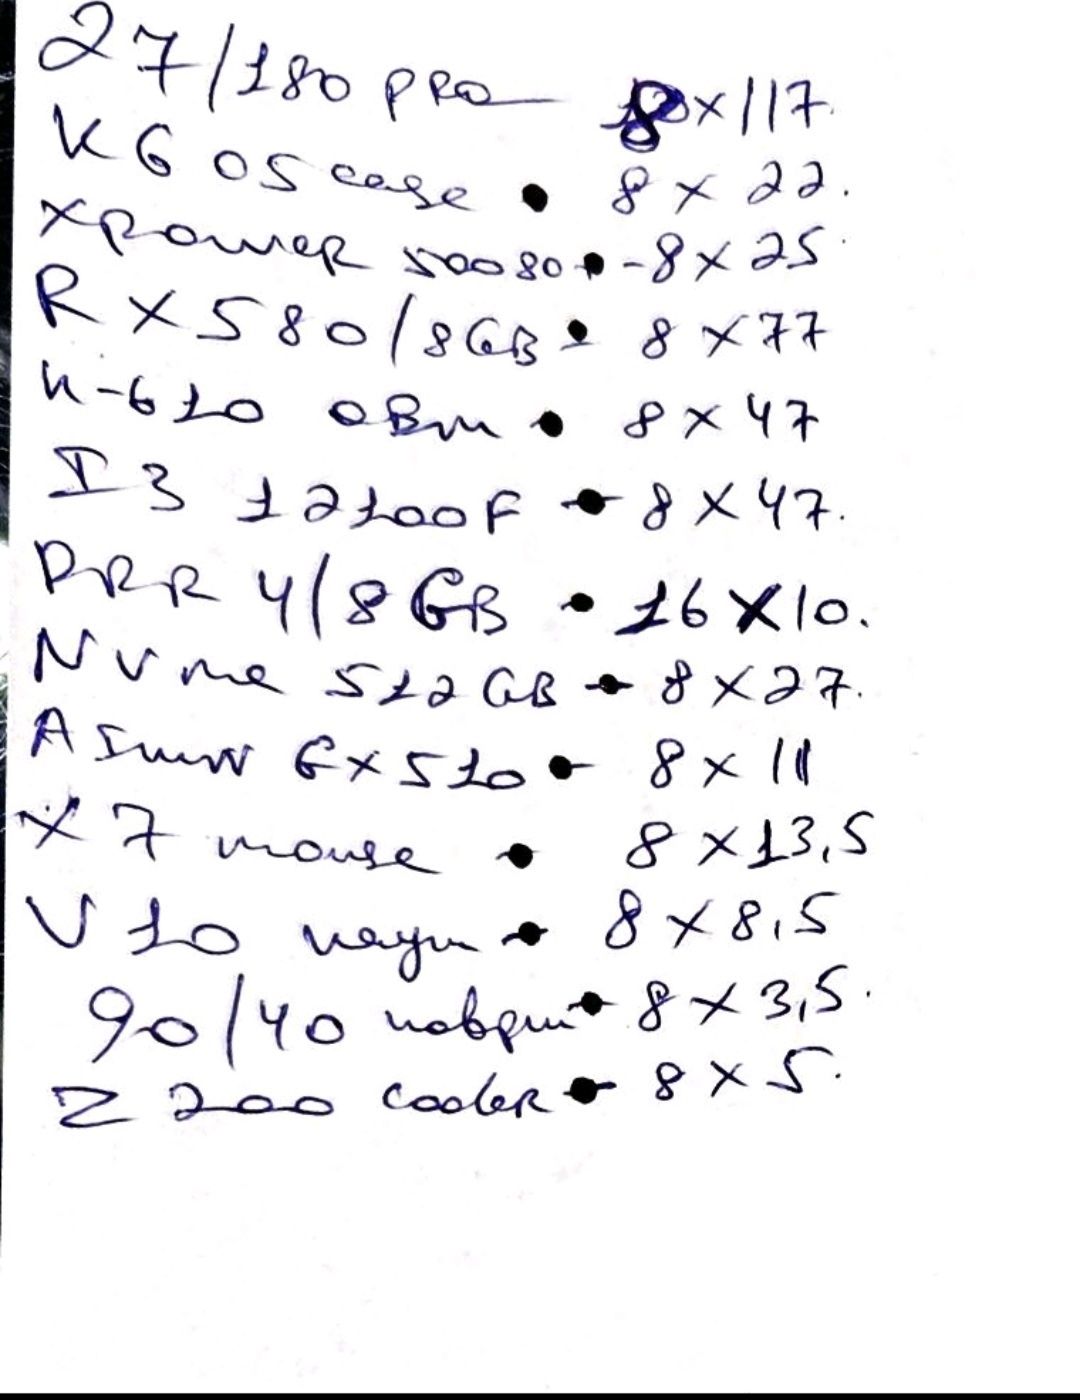 27/180 PRO 8x117.
K6 OS case • 8 x 22.
XPOWER 500 80+ - 8 x 25
RX580/8GB - 8 x 77
H-610 овт • 8 x 47
I3 12100F - 8 x 47.
DRR 4/8GB • 16 x 10.
NVme 512GB - 8 x 27.
GX510 - 8 x 11
X7 mouse • 8 x 13,5
V10 - 8 x 8,5
90/40 коврик - 8 x 3,5.
Z 200 cooler - 8 x 5.